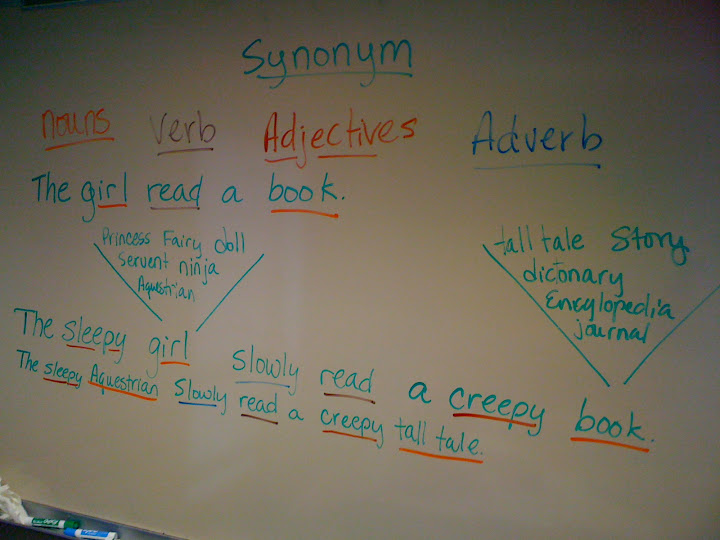 Synonym
nouns Verb Adjectives Adverb
The girl read a book.
Princess Fairy doll
Servent ninja
Aquestrian
tall tale Story
dictonary
Encylopedia
journal
The sleepy girl slowly read a creepy book.
The sleepy Aquestrian Slowly read a creepy tall tale.